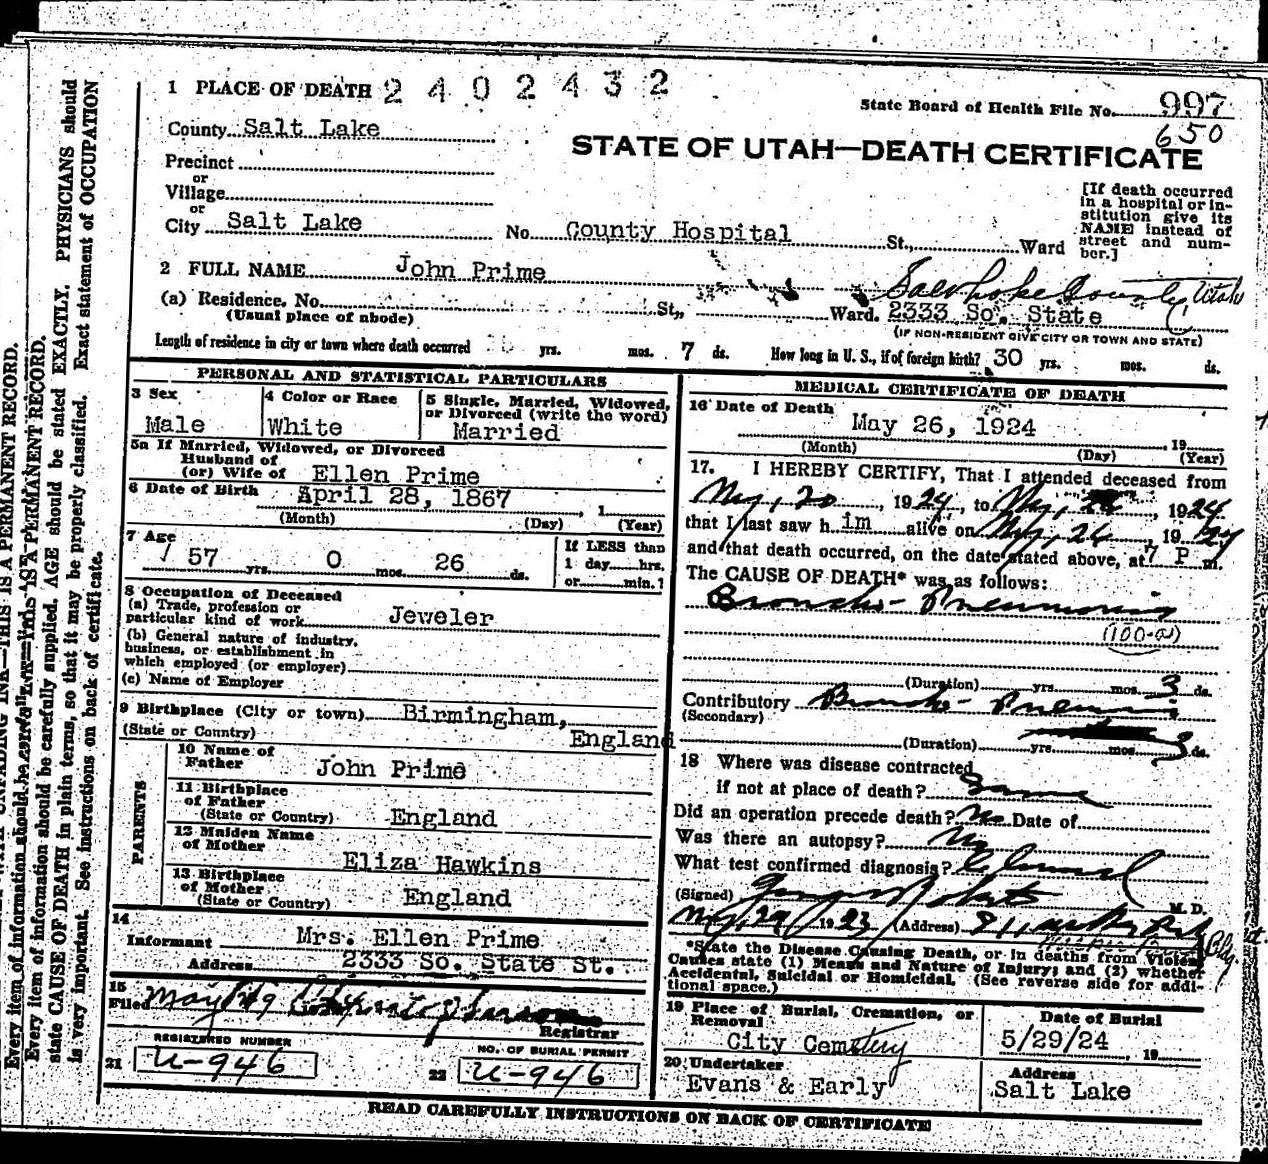 1 PLACE OF DEATH 2402432
State Board of Health File No. 997
650
County Salt Lake
STATE OF UTAH—DEATH CERTIFICATE
Precinct
or
Village
or
City Salt Lake No. County Hospital St., Ward
[If death occurred in a hospital or institution give its NAME instead of street and number.]
2 FULL NAME John Prime
Salt Lake County Utah
(a) Residence. No. St., Ward. 2333 So. State
(Usual place of abode)
(IF NON-RESIDENT GIVE CITY OR TOWN AND STATE)
Length of residence in city or town where death occurred yrs. mos. 7 ds. How long in U. S., if of foreign birth? 30 yrs. mos. ds.
PERSONAL AND STATISTICAL PARTICULARS
3 Sex
Male
4 Color or Race
White
5 Single, Married, Widowed,
or Divorced (write the word)
Married
5a If Married, Widowed, or Divorced
Husband of
(or) Wife of Ellen Prime
6 Date of Birth April 28, 1867 , 1
(Month) (Day) (Year)
7 Age
57 yrs. 0 mos. 26 ds.
If LESS than
1 day hrs.
or min.?
8 Occupation of Deceased
(a) Trade, profession or
particular kind of work Jeweler
(b) General nature of industry,
business, or establishment in
which employed (or employer)
(c) Name of Employer
9 Birthplace (City or town) Birmingham,
(State or Country) England
PARENTS
10 Name of
Father John Prime
11 Birthplace
of Father
(State or Country) England
12 Maiden Name
of Mother
Eliza Hawkins
13 Birthplace
of Mother
(State or Country) England
14
Informant Mrs. Ellen Prime
Address 2333 So. State St.
15
Filed May
Registrar
REGISTERED NUMBER
21 U-946
NO. OF BURIAL PERMIT
22 U-946
MEDICAL CERTIFICATE OF DEATH
16 Date of Death
May 26, 1924
19
(Month) (Day) (Year)
17. I HEREBY CERTIFY, That I attended deceased from
May, 20, 1924, to May, 1924
that I last saw him alive on May, 26, 1924
and that death occurred, on the date stated above, at 7 P m.
The CAUSE OF DEATH* was as follows:
Broncho-Pneumonia
(100-a)
(Duration) yrs. mos. 3 ds.
Contributory Broncho-Pneumonia
(Secondary)
(Duration) yrs. mos. 3 ds.
18 Where was disease contracted
if not at place of death? Same
Did an operation precede death? No Date of
Was there an autopsy? No
What test confirmed diagnosis? Clinical
(Signed) Roberts M. D.
May, 29, 1923 (Address)
Bldg.
*State the Disease Causing Death, or in deaths from Violent
Causes state (1) Means and Nature of Injury; and (2) whether
Accidental, Suicidal or Homicidal. (See reverse side for addi-
tional space.)
19 Place of Burial, Cremation, or
Removal
City Cemetery
Date of Burial
5/29/24 , 19
20 Undertaker
Evans & Early
Address
Salt Lake
READ CAREFULLY INSTRUCTIONS ON BACK OF CERTIFICATE
Every item of information should be carefully supplied. AGE should be stated EXACTLY. PHYSICIANS should
state CAUSE OF DEATH in plain terms, so that it may be properly classified. Exact statement of OCCUPATION
is very important. See instructions on back of certificate.